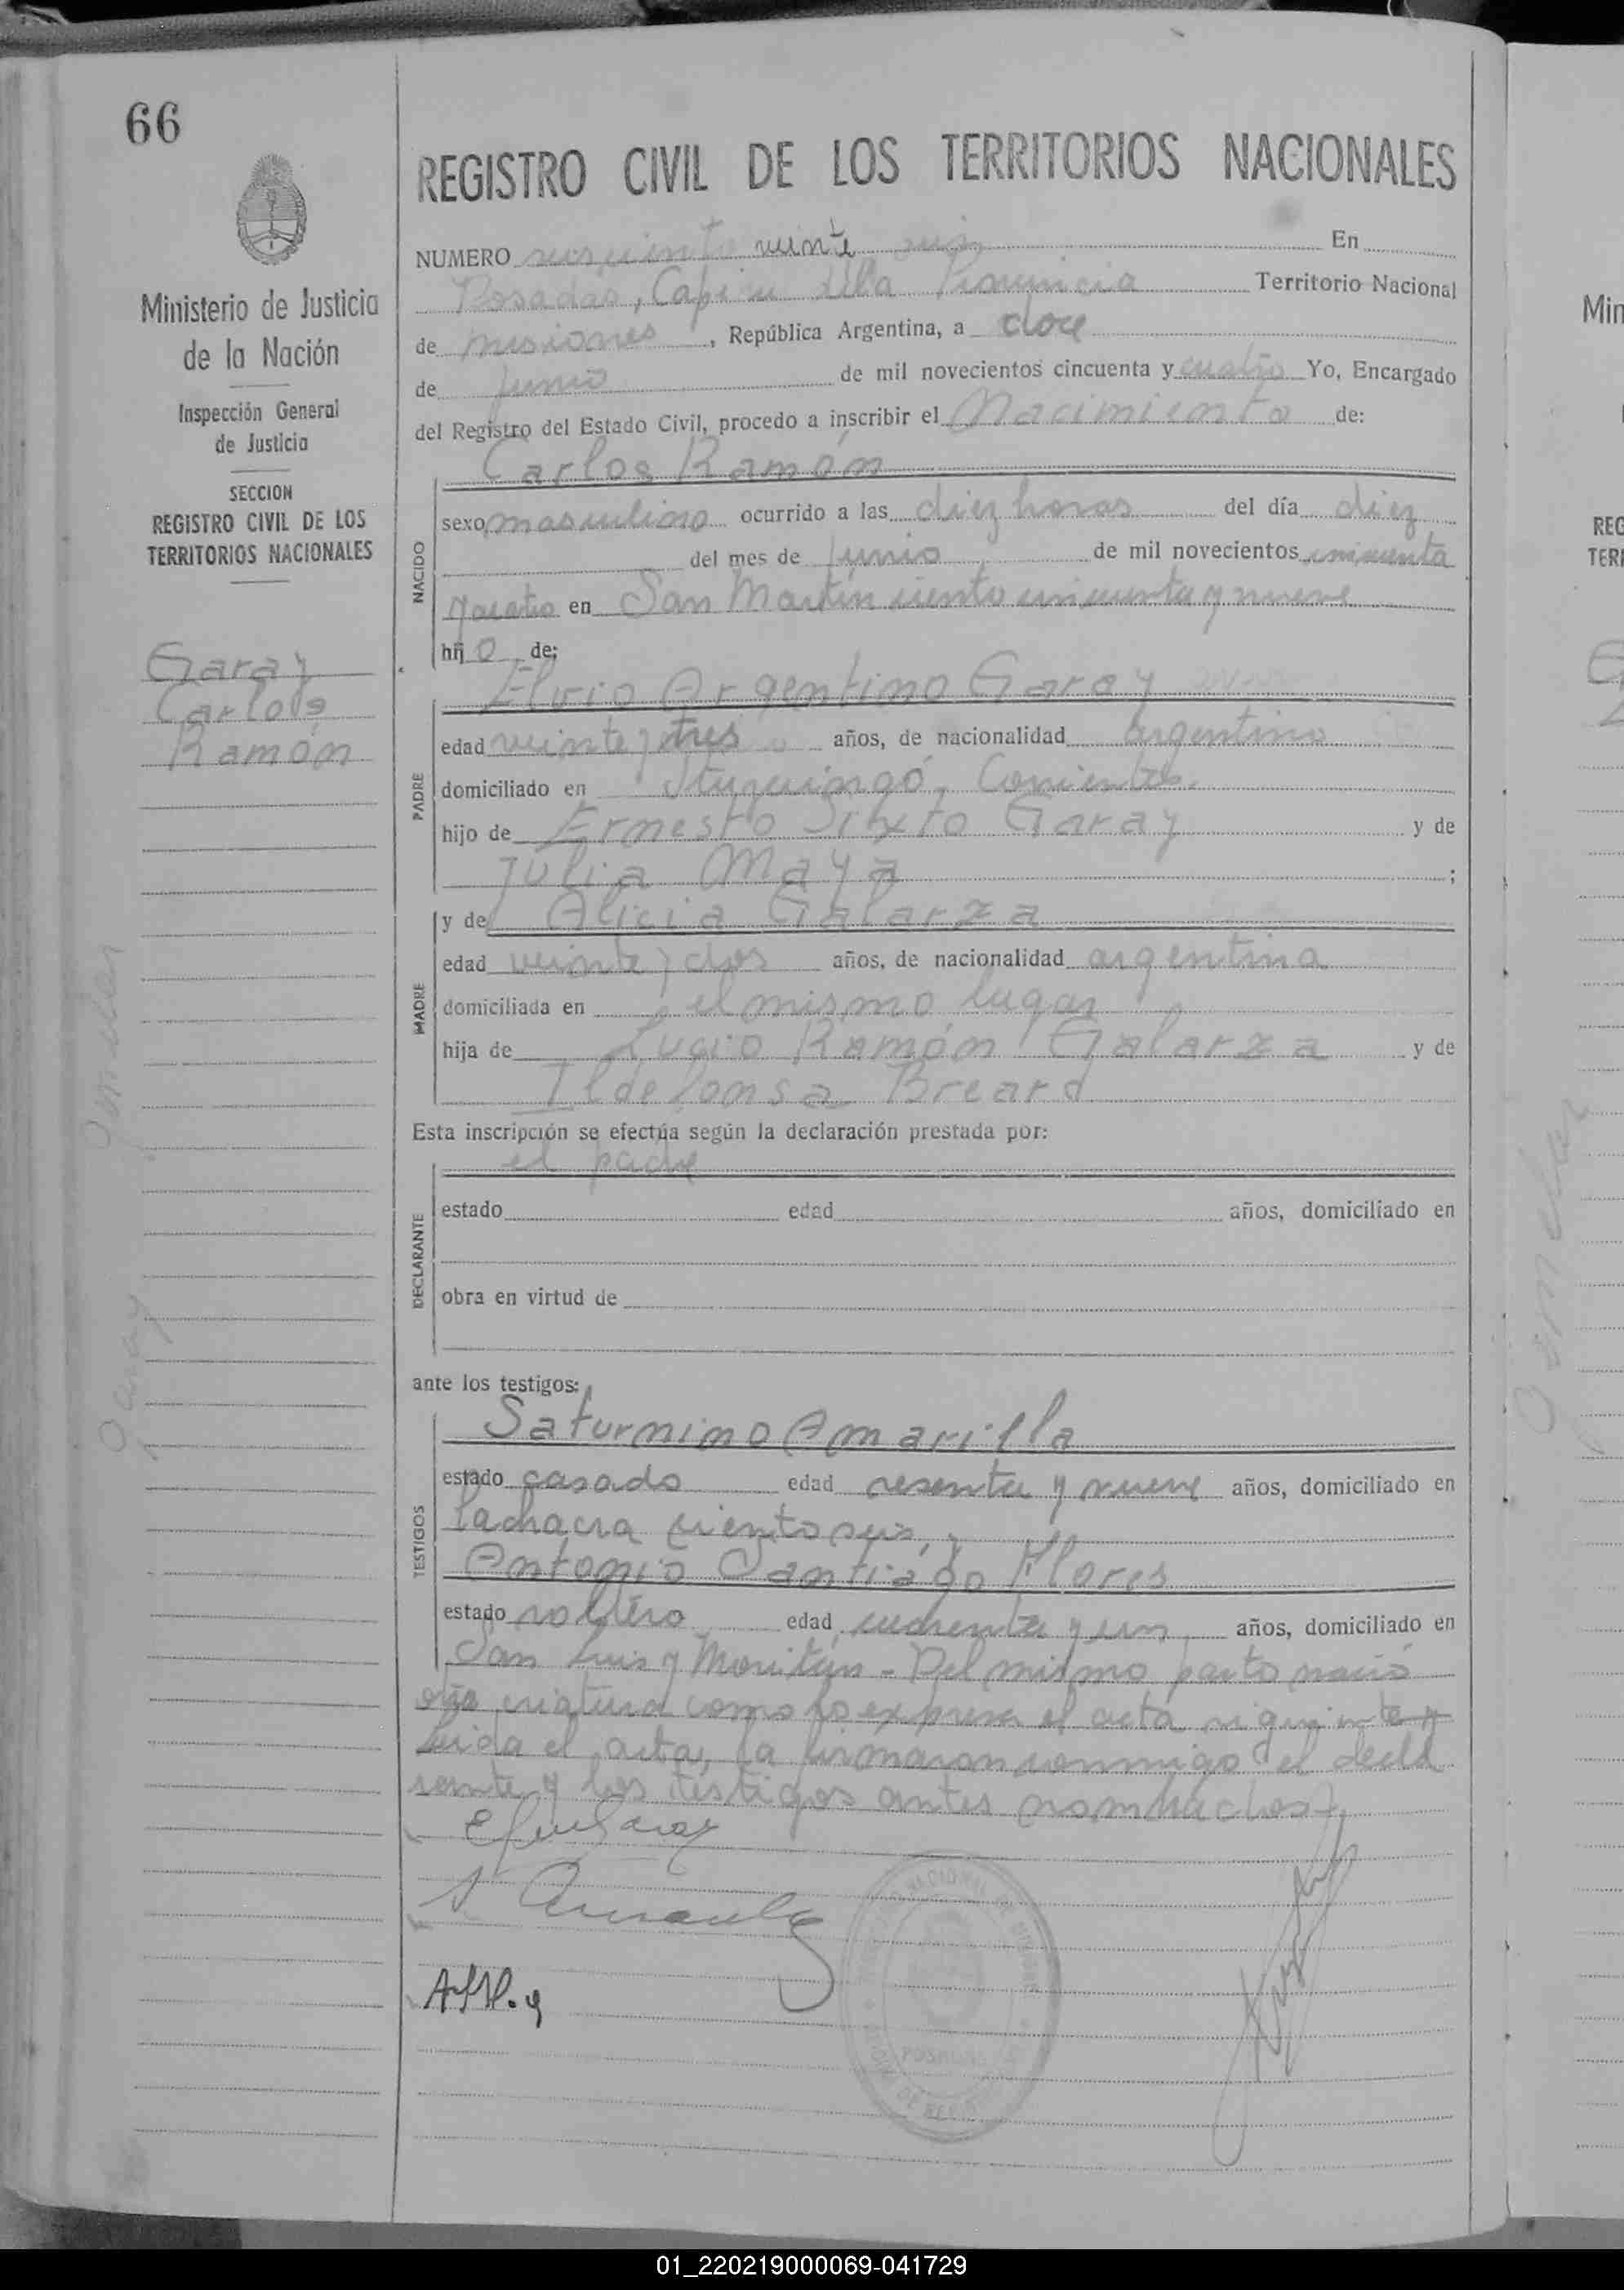 66
REGISTRO CIVIL DE LOS TERRITORIOS NACIONALES
Ministerio de Justicia
de la Nación
Inspección General
de Justicia
SECCION
REGISTRO CIVIL DE LOS
TERRITORIOS NACIONALES
Garay
Carlos
Ramón
NUMERO seiscientos veinte seis En
Posadas, Capital de la Provincia Territorio Nacional
de misiones, República Argentina, a doce
de Junio de mil novecientos cincuenta y cuatro Yo, Encargado
del Registro del Estado Civil, procedo a inscribir el Nacimiento de:
Carlos Ramón
NACIDO
sexo masculino ocurrido a las diez horas del día diez
del mes de Junio de mil novecientos cincuenta
y cuatro en San Martín ciento cincuenta y nueve
hij o de:
Elvio Argentino Garay
PADRE
edad veinte y tres años, de nacionalidad argentino
domiciliado en Ituzaingó, Corrientes.
hijo de Ernesto Sixto Garay y de
Julia Maya ;
MADRE
y de Alicia Galarza
edad veinte y dos años, de nacionalidad argentina
domiciliada en el mismo lugar
hija de Lucio Ramón Galarza y de
Ildefonsa Breard
Esta inscripción se efectúa según la declaración prestada por:
el padre
DECLARANTE
estado edad años, domiciliado en
obra en virtud de
ante los testigos:
Saturnino Amarilla
TESTIGOS
estado casado edad sesenta y nueve años, domiciliado en
la chacra ciento seis, y
Antonio Santiago Flores
estado soltero edad cuarenta y un años, domiciliado en
San Luis y - Del mismo parto nació
otra criatura como lo expresa el acta siguiente y
leida el acta, la firmaron conmigo el decla
rante y los testigos antes nombrados
Garay
POSADAS
Min
REG
TERR
01_220219000069-041729